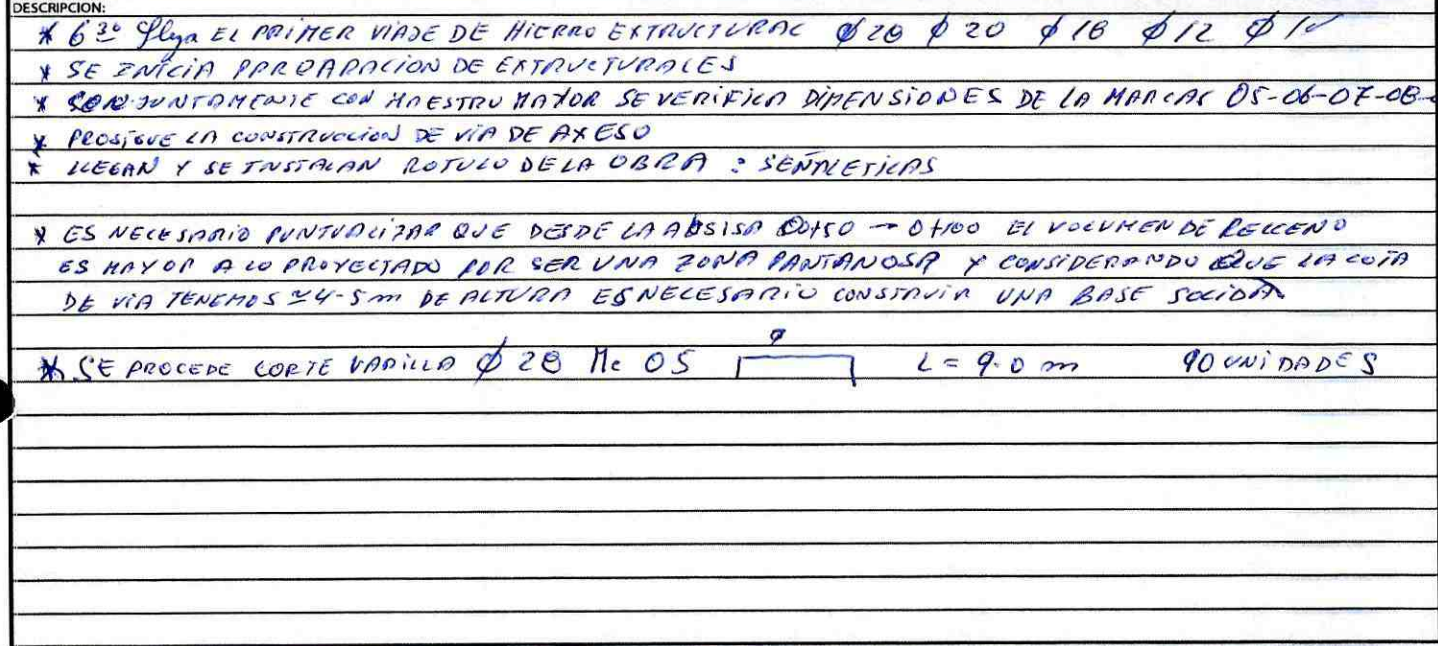 DESCRIPCION:
* 6 30 llega EL PRIMER VIAJE DE HIERRO EXTRUCTURAL ϕ 28 ϕ 20 ϕ 18 ϕ 12 ϕ 1
* SE INICIA PREPARACION DE EXTRUCTURALES
* CONJUNTAMENTE CON MAESTRO MAYOR SE VERIFICA DIMENSIONES DE LA MARCAS 05-06-07-08-
* PROSIGUE LA CONSTRUCCION DE VIA DE AXESO
* LLEGAN Y SE INSTALAN ROTULO DE LA OBRA : SEÑALETICAS
* ES NECESARIO PUNTUALIZAR QUE DESDE LA ABSISA 0+50 → 0+100 EL VOLUMEN DE RELLENO
ES MAYOR A LO PROYECTADO POR SER UNA ZONA PANTANOSA Y CONSIDERANDO QUE LA COTA
DE VIA TENEMOS ≃ 4-5 m DE ALTURA ES NECESARIO CONSTRUIR UNA BASE SOLIDA
9
* SE PROCEDE CORTE VARILLA ϕ 28 Mc 05 L = 9.0 m 90 UNIDADES